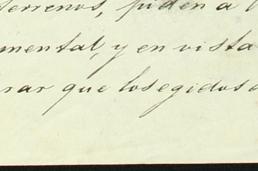 terrenos, piden a l
mental, y en vista
rar que los egidos d